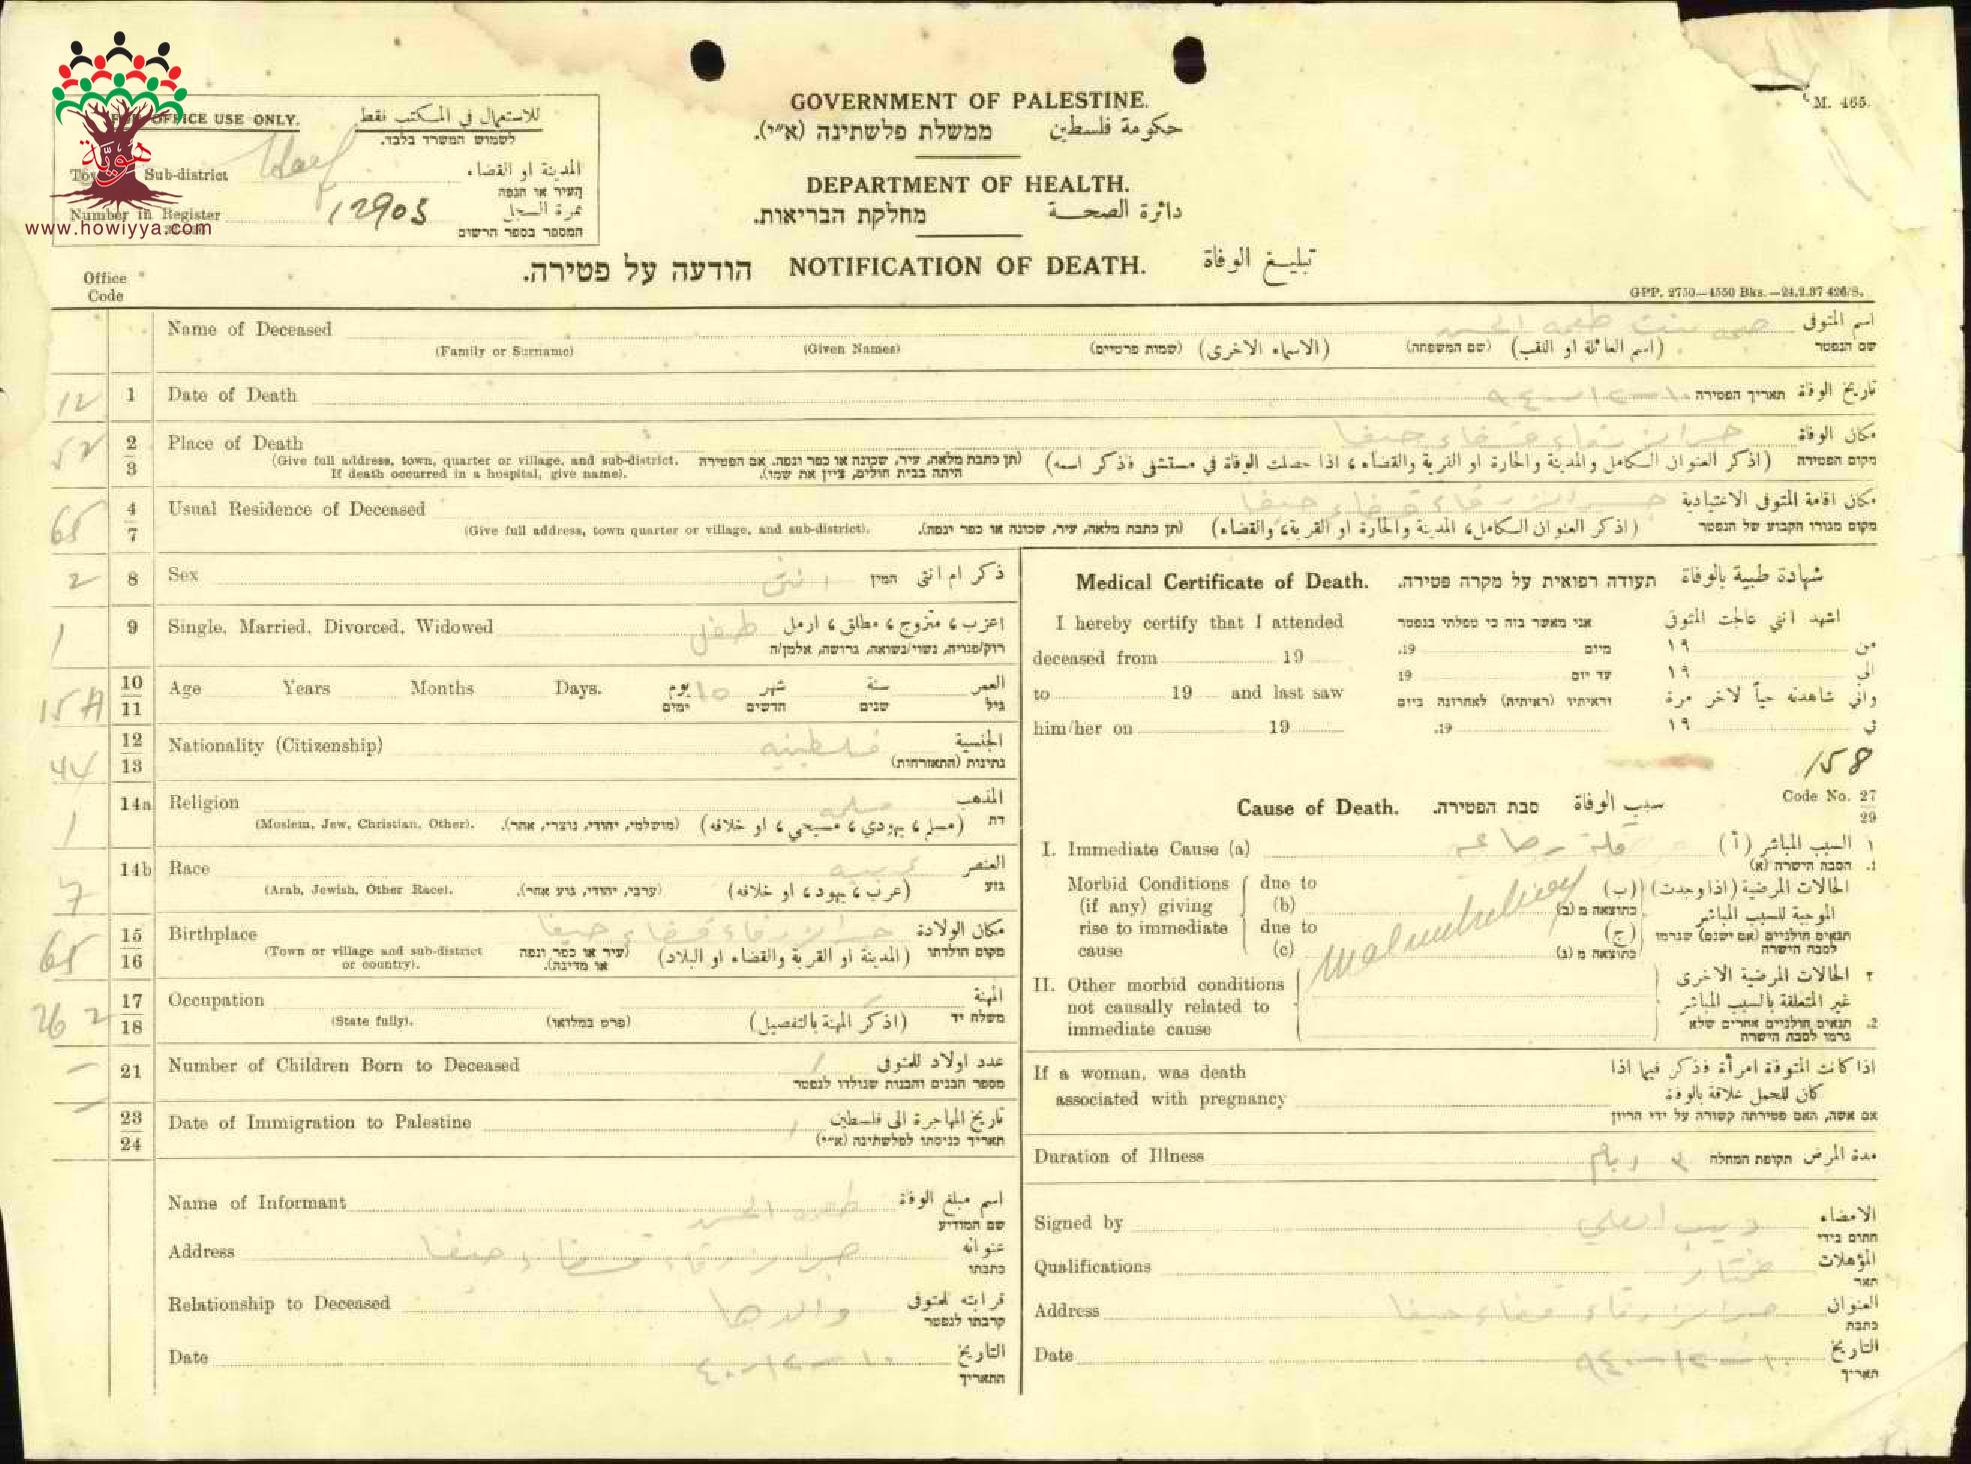 GOVERNMENT OF PALESTINE.
حكومة فلسطين ממשלת פלשתינה (א״י).
M. 465.
DEPARTMENT OF HEALTH.
دائرة الصحة מחלקת הבריאות.
FOR OFFICE USE ONLY. للاستعمال في المكتب فقط
לשמוש המשרד בלבד.
Sub-district المدينة او القضاء
העיר או הנפה
Number in Register 12903 نمرة السجل
המספר בספר הרשום
هوية
www.howiyya.com
NOTIFICATION OF DEATH. تبليغ الوفاة הודעה על פטירה.
GPP. 2750—4550 Bks.—24.2.37 426/S.
Office
Code
Name of Deceased اسم المتوفى
(Family or Surname) (Given Names) (שמות פרטיים) (الاسماء الاخرى) (שם המשפחה) (اسم العائلة او اللقب) שם הנפטר
12 1 Date of Death ١٠-١٢-٩٤٠ תאריך הפטירה تاريخ الوفاة
52 2 Place of Death مكان الوفاة
3 (Give full address, town, quarter or village, and sub-district. (תן כתבת מלאה, עיר, שכונה או כפר ונפה. אם הפטירה (اذكر العنوان الكامل والمدينة والحارة او القرية والقضاء، اذا حصلت الوفاة في مستشفى فاذكر اسمه) מקום הפטירה
If death occurred in a hospital, give name). היתה בבית חולים, ציין את שמו).
65 4 Usual Residence of Deceased مكان اقامة المتوفى الاعتيادية
7 (Give full address, town quarter or village, and sub-district). (תן כתבת מלאה, עיר, שכונה או כפר ונפה). (اذكر العنوان الكامل، المدينة والحارة او القرية، والقضاء) מקום מגורו הקבוע של הנפטר
2 8 Sex انثى המין ذكر ام انثى
1 9 Single, Married, Divorced, Widowed طفل اعزب، متزوج، مطلق، ارمل
רוק/פנויה, נשוי/נשואה, גרושה, אלמן/ה
15 A 10 Age Years Months Days. 10 يوم شهر سنة العمر
11 ימים חדשים שנים גיל
44 12 Nationality (Citizenship) فلسطينيه الجنسية
13 נתינות (התאזרחות)
1 14a Religion مسلمه المذهب
(Moslem, Jew, Christian, Other). (מושלמי, יהודי, נוצרי, אחר). (مسلم، يهودي، مسيحي، او خلافه) דת
7 14b Race عربيه العنصر
(Arab, Jewish, Other Race). (ערבי, יהודי, גזע אחר). (عرب، يهود، او خلافه) גזע
65 15 Birthplace مكان الولادة
16 (Town or village and sub-district (עיר או כפר ונפה (المدينة او القرية والقضاء او البلاد) מקום הולדתו
or country). או מדינה).
26 2 17 Occupation المهنة
18 (State fully). (פרט במלואו) (اذكر المهنة بالتفصيل) משלח יד
21 Number of Children Born to Deceased عدد اولاد للمتوفى
מספר הבנים והבנות שנולדו לנפטר
23 Date of Immigration to Palestine تاريخ المهاجرة الى فلسطين
24 תאריך כניסתו לפלשתינה (א״י)
Name of Informant اسم مبلغ الوفاة
שם המודיע
Address عنوانه
כתבתו
Relationship to Deceased والدها قرابته للمتوفى
קרבתו לנפטר
Date ١٠-١٢-٤٠ التاريخ
התאריך
Medical Certificate of Death. תעודה רפואית על מקרה פטירה. شهادة طبية بالوفاة
I hereby certify that I attended אני מאשר בזה כי טפלתי בנפטר اشهد انني عالجت المتوفى
deceased from 19 מיום 19. من ١٩
to 19 and last saw עד יום 19 الى ١٩
וראיתיו (ראיתיה) לאחרונה ביום واني شاهدته حياً لاخر مرة
him/her on 19 19. في ١٩
158
Cause of Death. סבת הפטירה. سبب الوفاة Code No. 27
29
I. Immediate Cause (a) قلة رضاعه ١ السبب المباشر (أ)
1. הסבה הישרה (א)
Morbid Conditions due to الحالات المرضية (اذا وجدت) (ب)
(if any) giving (b) כתוצאה מ (ב) الموجبة للسبب المباشر
rise to immediate due to (ج) תנאים חולניים (אם ישנם) שגרמו
cause (c) כתוצאה מ (ג) לסבה הישרה
malnutrition
II. Other morbid conditions ٢ الحالات المرضية الاخرى
not causally related to غير المتعلقة بالسبب المباشر
immediate cause 2. תנאים חולניים אחרים שלא
גרמו לסבה הישרה
If a woman, was death اذا كانت المتوفاة امرأة فذكر فيما اذا
associated with pregnancy كان للحمل علاقة بالوفاة
אם אשה, האם פטירתה קשורה על ידי הריון
Duration of Illness ٣ ايام תקופת המחלה مدة المرض
Signed by ديب العلي الامضاء
חתום בידי
Qualifications مختار المؤهلات
תאר
Address العنوان
כתבת
Date ١٠-١٢-٩٤٠ التاريخ
תאריך